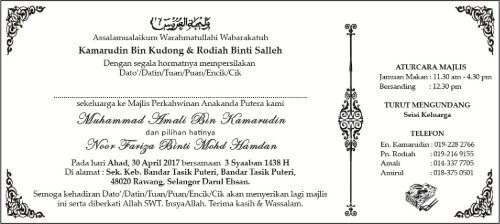 وليمة العروس
Assalamualaikum Warahmatullahi Wabarakatuh
Kamarudin Bin Kudong & Rodiah Binti Salleh
Dengan segala hormatnya mempersilakan
Dato'/Datin/Tuan/Puan/Encik/Cik
sekeluarga ke Majlis Perkahwinan Anakanda Putera kami
Muhammad Amali Bin Kamarudin
dan pilihan hatinya
Noor Fariza Binti Mohd Hamdan
Pada hari Ahad, 30 April 2017 bersamaan 3 Syaaban 1438 H
Di alamat : Sek. Keb. Bandar Tasik Puteri, Bandar Tasik Puteri,
48020 Rawang, Selangor Darul Ehsan.
Semoga kehadiran Dato'/Datin/Tuan/Puan/Encik/Cik akan menyerikan lagi majlis
ini serta diberkati Allah SWT. InsyaAllah. Terima kasih & Wassalam.
ATURCARA MAJLIS
Jamuan Makan : 11.30 am - 4.30 pm
Bersanding : 12.30 pm
TURUT MENGUNDANG
Seisi Keluarga
TELEFON
En. Kamarudin : 019-228 2766
Pn. Rodiah : 019-216 9155
Amali : 014-337 7705
Amirul : 018-375 0501